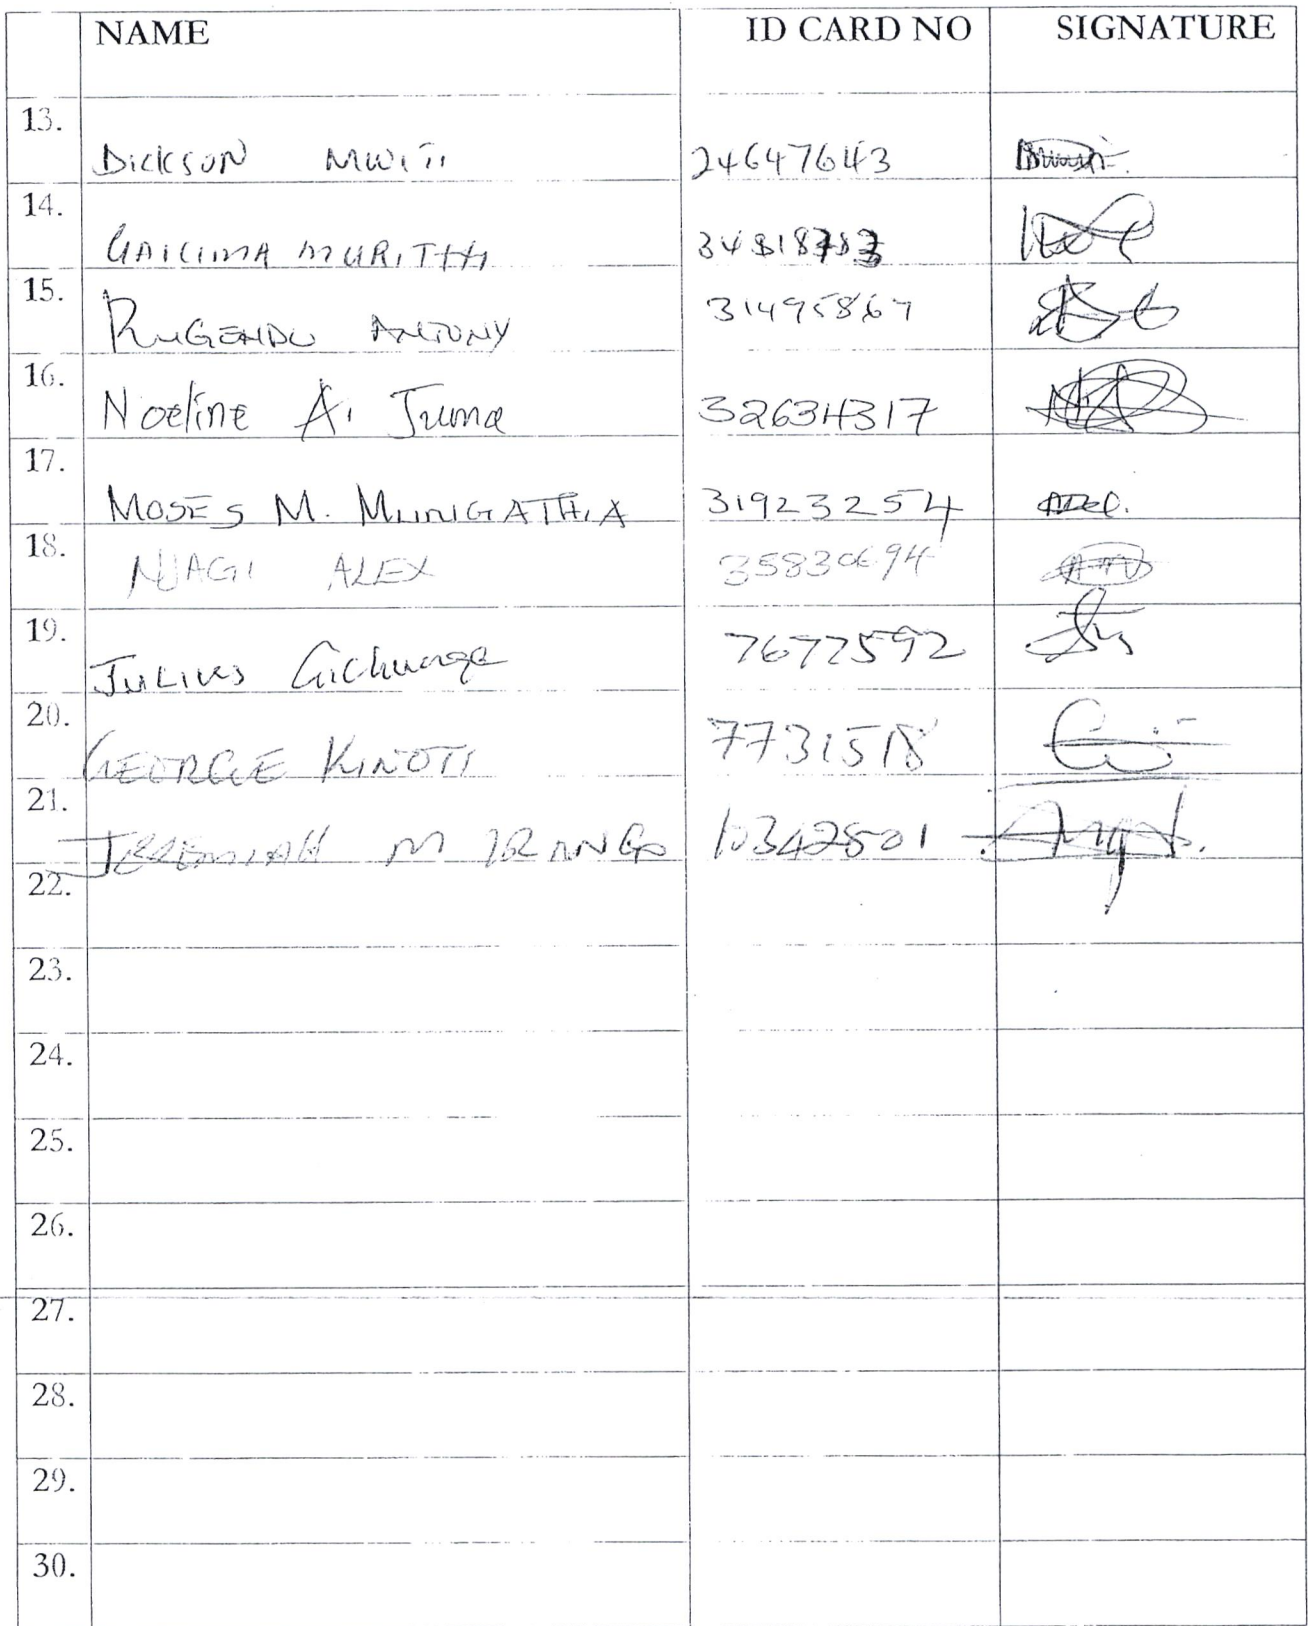 NAME ID CARD NO SIGNATURE
13. Dickson Mwiti 24647643
14. GAICIMA MURITHI
15. RUGENDO ANTONY 31495867
16. Noeline A. Juma 32634317
17. MOSES M. MUNGATHIA 31923254
18. NJAGI ALEX 35830694
19. JULIUS Gichunge 7677592
20. GEORGE KINOTI 7731518
21. JEREMIAH M IRUNGO 10342801
22.
23.
24.
25.
26.
27.
28.
29.
30.